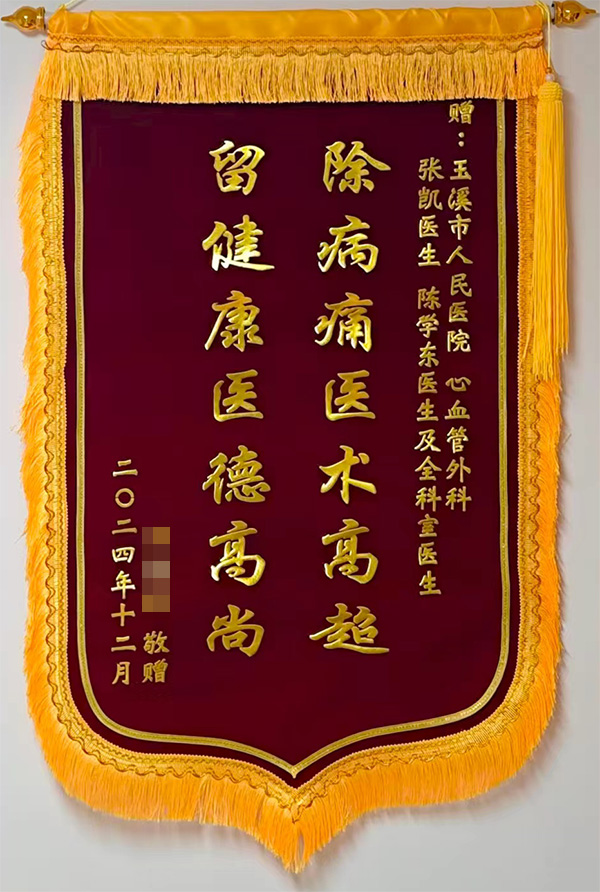 赠：玉溪市人民医院 心血管外科
张凯医生 陈学东医生及全科室医生
除病痛医术高超
留健康医德高尚
敬赠
二〇二四年十二月